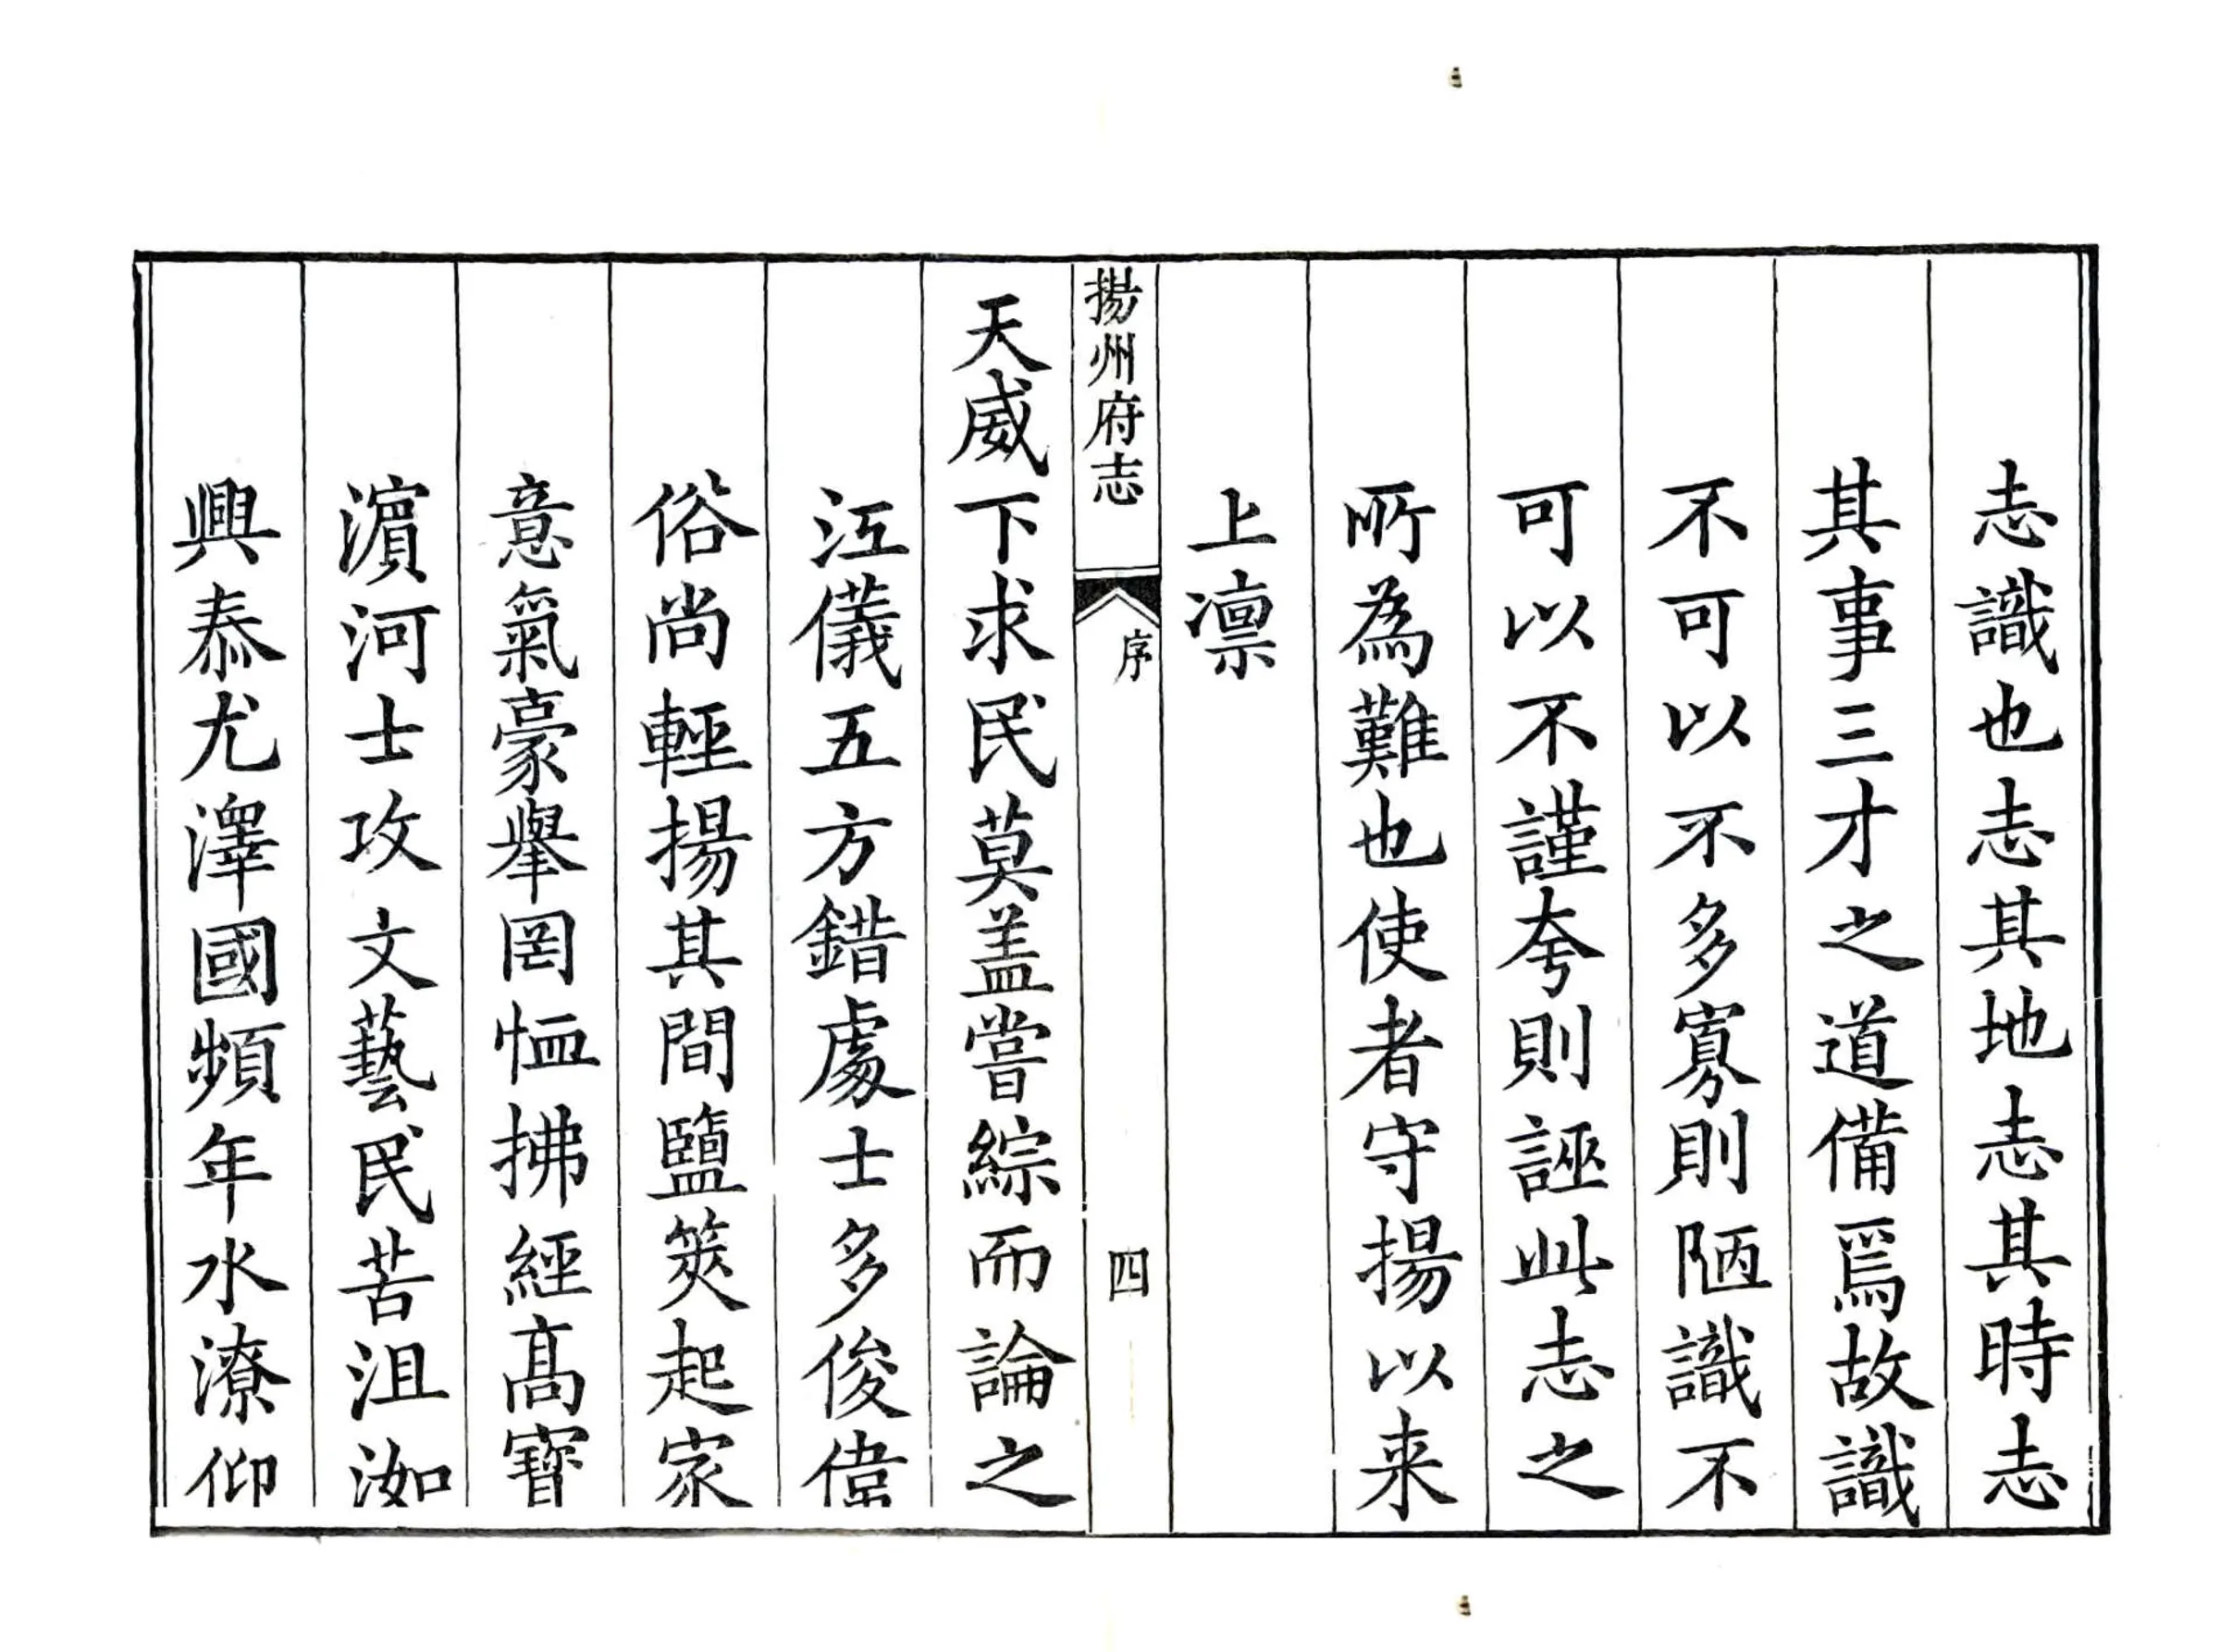 志識也志其地志其時志
其事三才之道備焉故識
不可以不多寡則陋識不
可以不謹夸則誣此志之
所為難也使者守揚以来
上凛
揚州府志
序
四
天威下求民莫盖嘗綜而論之
江儀五方錯處士多俊偉
俗尚輕揚其間鹽筴起家
意氣豪舉罔恤拂經髙寶
濵河士攻文藝民苦沮洳
興泰尤澤國頻年水潦仰